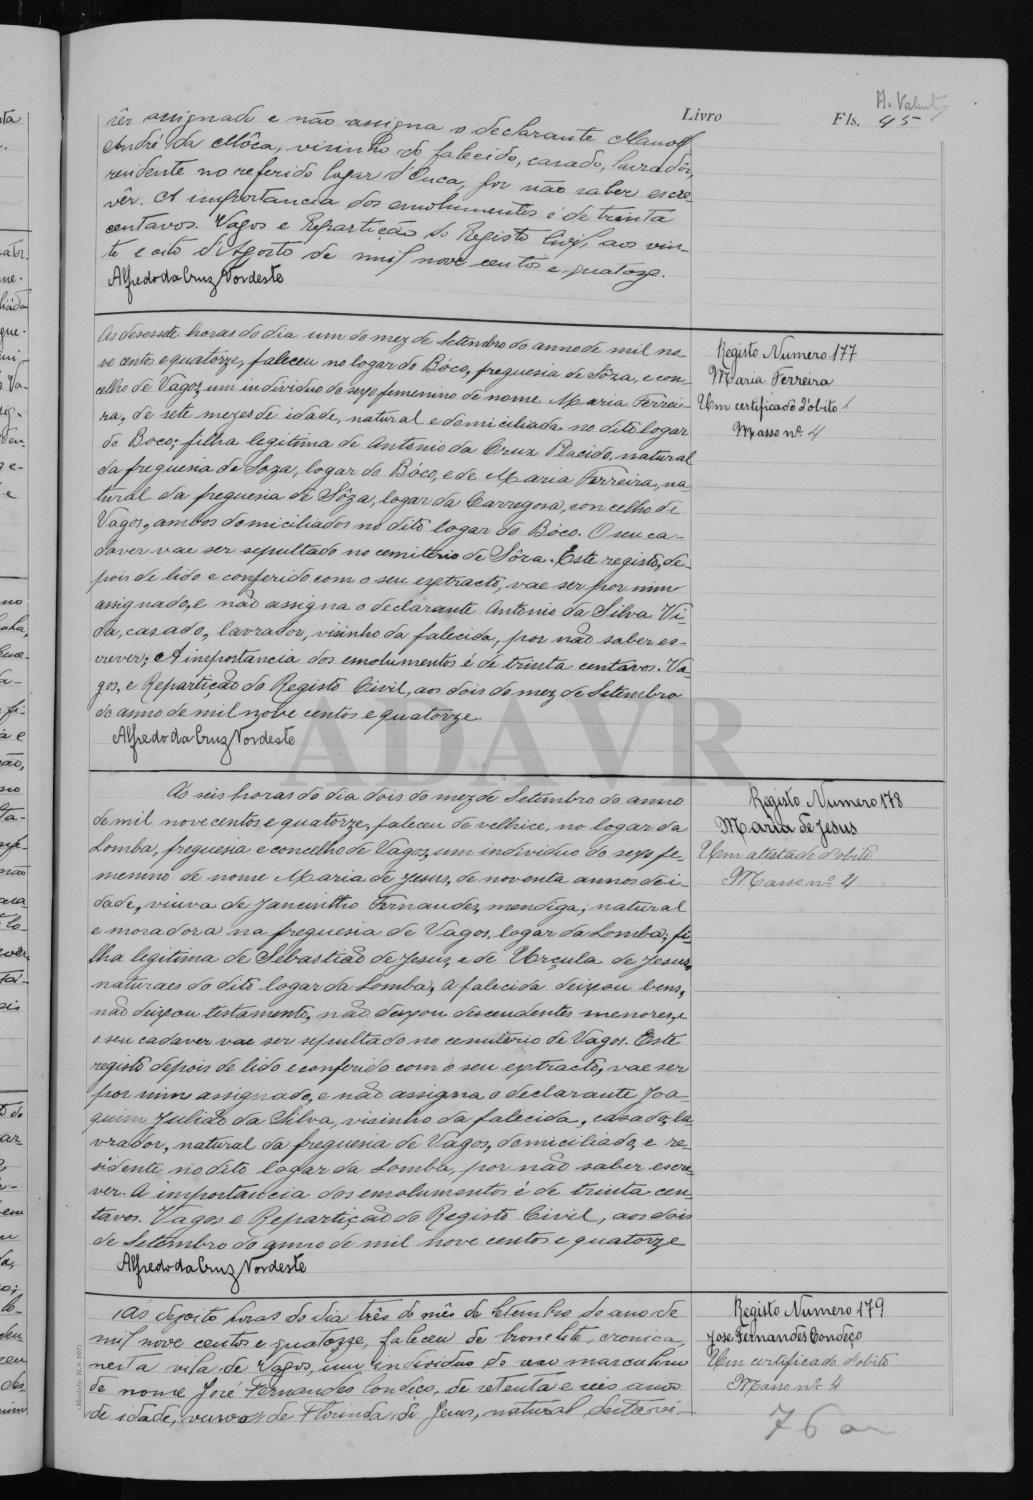 Livro
Fls. 45
ser assignado e não assigna o declarante Manoel
André da Môca, visinho do falecido, casado, lavradôr,
residente no referido logar d'Ouca, por não saber escre-
vêr. A importancia dos emolumentos é de trinta
centavos. Vagos e Repartição do Registo Civil, aos vin-
te e oito d'Agosto de mil nove centos e quatorze.
Alfredo da Cruz Nordeste
As desesete horas do dia um do mez de Setembro do anno de mil no-
ve centos e quatorze, faleceu no logar do Bóco, freguesia de Sôza, e con-
celho de Vagos, um individuo do sexo femenino de nome Maria Ferrei-
ra, de sete mezes de idade, natural e domiciliada no dito logar
do Boco; filha legitima de Antonio da Cruz Placido, natural
da freguesia de Soza, logar do Bóco, e de Maria Ferreira, na-
tural da freguesia de Sôza, logar da Carregosa, concelho de
Vagos, ambos domiciliados no dito logar do Bóco. O seu ca-
daver vae ser sepultado no cemiterio de Sôza. Este registo, de-
pois de lido e conferido com o seu extracto, vae ser por mim
assignado, e não assigna o declarante Antonio da Silva Vi-
da, casado, lavrador, visinho da falecida, por não saber es-
crever; A importancia dos emolumentos é de trinta centavos. Va-
gos, e Repartição do Registo Civil, aos dois do mez de Setembro
do anno de mil nove centos e quatorze.
Alfredo da Cruz Nordeste
Registo Numero 177
Maria Ferreira
Um certificado d'obito
Masso nº 4
ADAVR
Ás seis horas do dia dois do mez de Setembro do anno
de mil novecentos e quatorze, faleceu de velhice, no logar da
Lomba, freguesia e concelho de Vagos, um individuo do sexo fe-
menino de nome Maria de Jesus, de noventa annos de i-
dade, viuva de Jancinttio Fernandes, mendiga, natural
e moradora na freguesia de Vagos, logar da Lomba; fi-
lha legitima de Sebastião de Jesus, e de Urçula de Jesus,
naturaes do dito logar da Lomba, A falecida deixou bens,
não deixou testamento, não deixou descendentes menores, e
o seu cadaver vae ser sepultado no cemiterio de Vagos. Este
registo depois de lido e conferido com o seu extracto, vae ser
por mim assignado, e não assigna o declarante Joa-
quim Julião da Silva, visinho da falecida, casado, la-
vrador, natural da freguesia de Vagos, domiciliado, e re-
sidente no dito logar da Lomba, por não saber escre-
ver. A importancia dos emolumentos é de trinta cen-
tavos. Vagos e Repartição do Registo Civil, aos dois
de Setembro do anno de mil nove centos e quatorze
Alfredo da Cruz Nordeste
Registo Numero 178
Maria de Jesus
Um atestado d'obito
Masso nº 4
Ás dezoito horas do dia três do mês de Setembro do ano de
mil nove centos e quatorze, faleceu de bronchite cronica,
nesta vila de Vagos, um individuo do sexo masculino
de nome José Fernandes Condeço, de setenta e seis anos
de idade, viuvo, de Florinda de Jesus, natural desta vi-
Registo Numero 179
José Fernandes Condeço
Um certificado d'obito
Masso nº 4
(Modelo N.º 107)